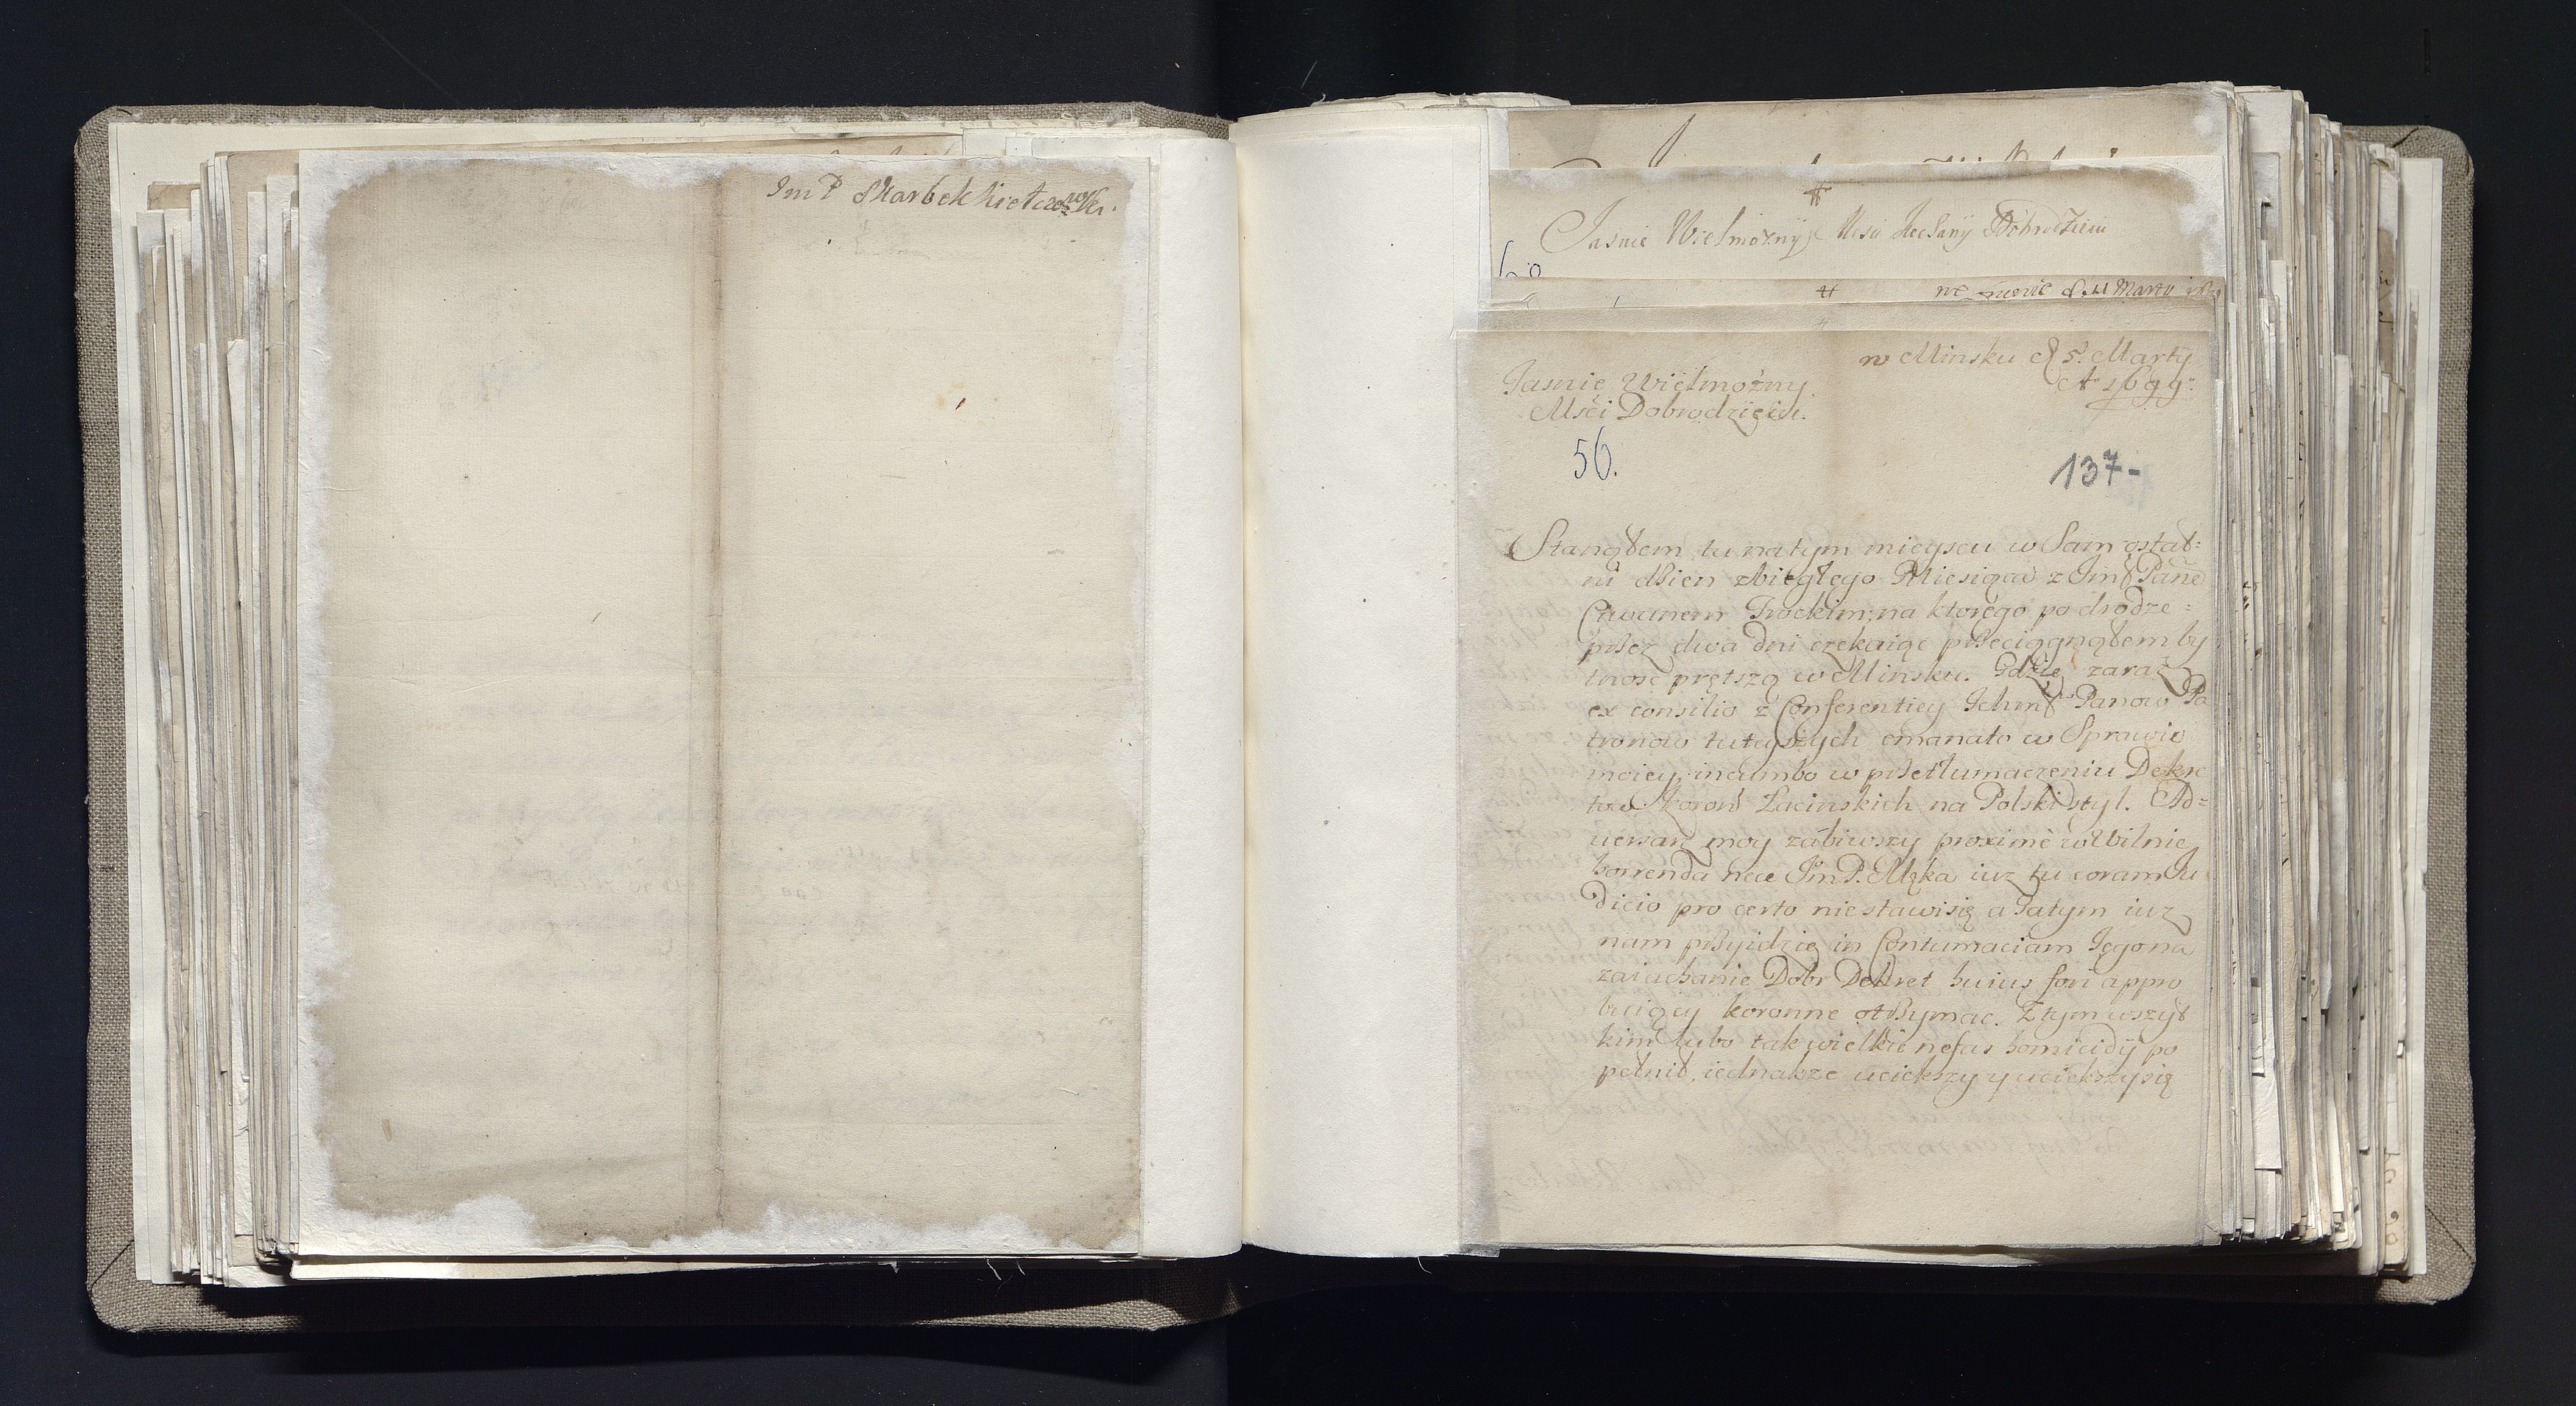 Im P Skarbek
Jasnie Wielmozny Mosci Dobrodzieiu
8. 11 Marty
w Minsku d 5. Marty
A 1699.
Jasnie Wielmożny
Msći Dobrodzieiu.
56.
137-
Stanąłem tu na tym mieyscu w Sam ostat=
ni dzien zbiegłego Miesiąca z Jmć Pane
Ciwunem Trockim, na ktorego po drodze=
przez dwa dni czekaiąc przeciągnąłem by
tnosć prętszą w Minsku. Gdzie zaraz
ex consilio z Conferentiey Ichmć Panow Pa
tronow tuteyszych emanato w Sprawie
moiey, incumbo w przetłumaczeniu Dekre
tow Koron Łacinskich na Polski styl. Ad=
uersarz moy zabiwszy proximè w Wilnie
horrenda nece JmP. Mąka iuz tu coram Ju
dicio pro certo nie stawi się a zatym iuz
nam przyidzie in Contumaciam Jego na
zaiachanie Dobr Dekret huius fori appro
buiący koronne otrzymac. Z tym wszyt
kim lubo tak wielkie nefas homicidÿ po
pełnił, iednakze uciekszy y uciekszy się